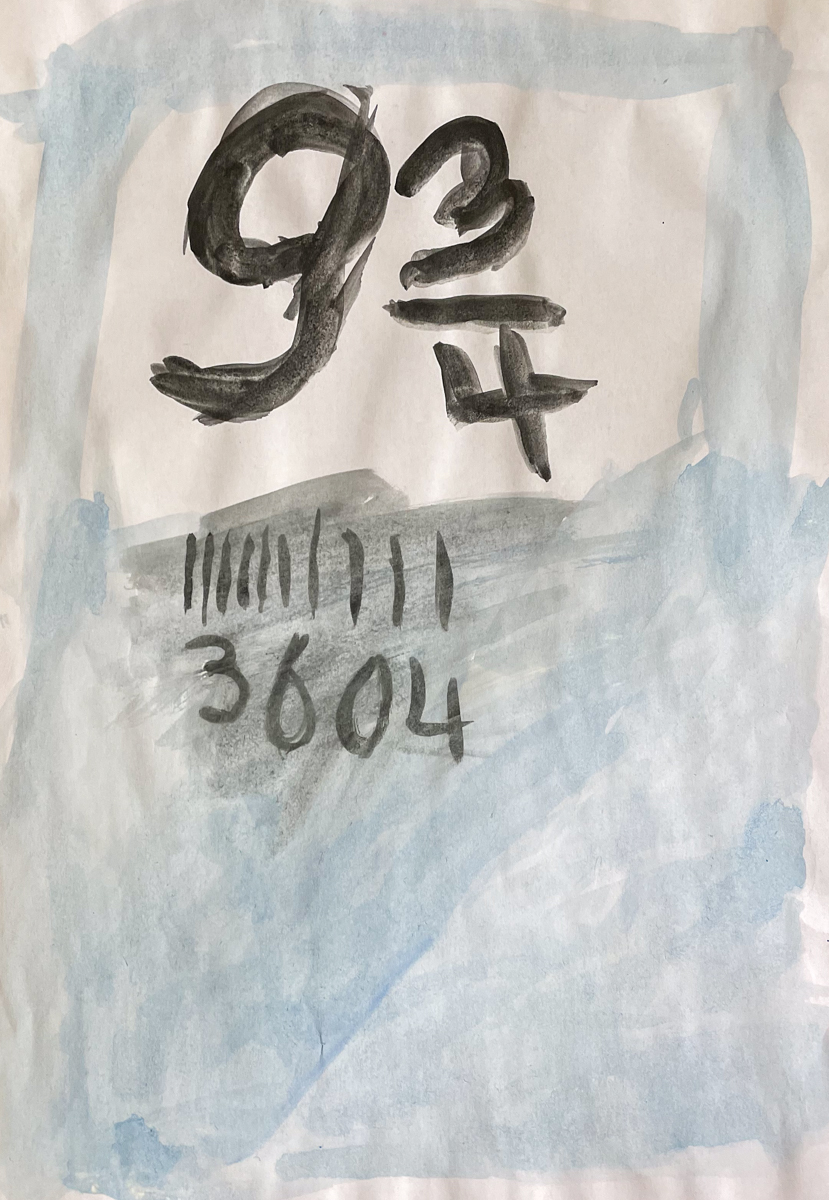 9 3/4
3604